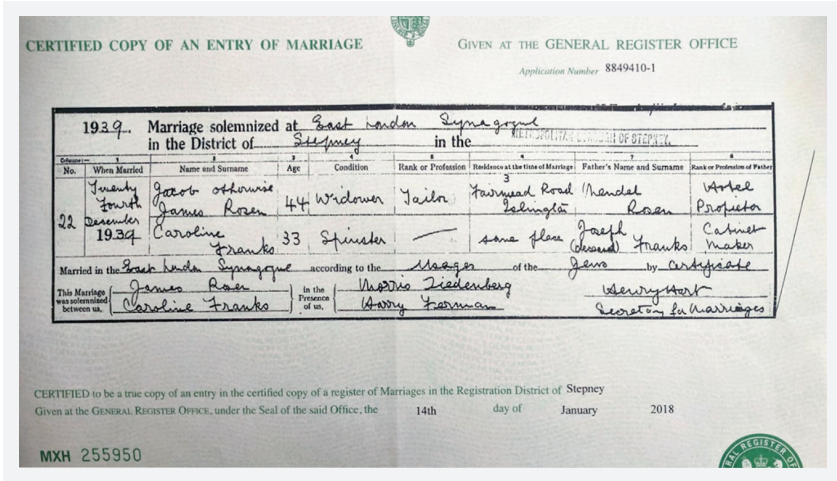 CERTIFIED COPY OF AN ENTRY OF MARRIAGE
GIVEN AT THE GENERAL REGISTER OFFICE
Application Number 8849410-1
1939. Marriage solemnized at East London Synagogue
in the District of Stepney in the METROPOLITAN BOROUGH OF STEPNEY.
Columns:— 1 2 3 4 5 6 7 8
No. When Married Name and Surname Age Condition Rank or Profession Residence at the time of Marriage Father's Name and Surname Rank or Profession of Father
22 Twenty Fourth December 1939
Jacob otherwise James Rosen 44 Widower Tailor 3 Fairmead Road Islington Mendel Rosen Hotel Propietor
Caroline Franks 33 Spinster — same place Joseph (deceased) Franks Cabinet Maker
Married in the East London Synagogue according to the Usages of the Jews by Certificate
This Marriage was solemnized between us,
James Rosen
Caroline Franks
in the Presence of us,
Morris Ziedenberg
Harry Forman
Henry Hart
Secretary for Marriages
CERTIFIED to be a true copy of an entry in the certified copy of a register of Marriages in the Registration District of Stepney
Given at the GENERAL REGISTER OFFICE, under the Seal of the said Office, the 14th day of January 2018
MXH 255950
RAL REGISTER OF